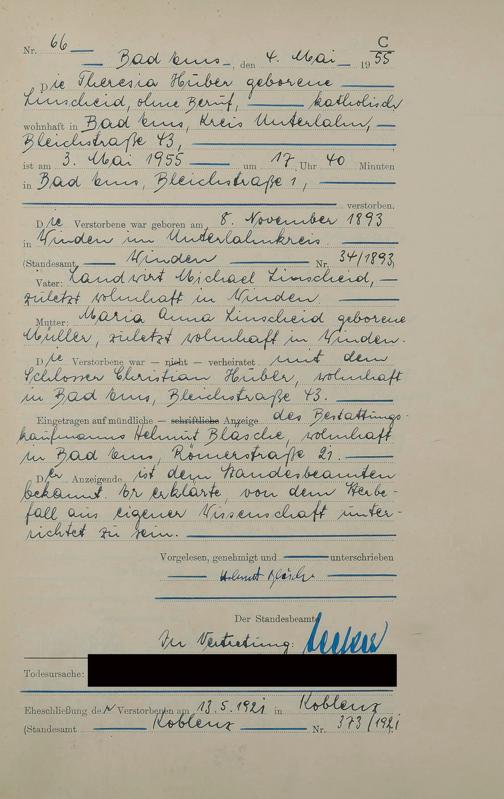 C
Nr. 66
Bad Ems, den 4. Mai 1955
Die Theresia Hüber geborene
Linscheid, ohne Beruf, katholisch
wohnhaft in Bad Ems, Kreis Unterlahn,
Bleichstraße 43,
ist am 3. Mai 1955 um 17 Uhr 40 Minuten
in Bad Ems, Bleichstraße 1,
verstorben.
Die Verstorbene war geboren am 8. November 1893
in Winden im Unterlahnkreis
(Standesamt Winden Nr. 34/1893)
Vater: Landwirt Michael Linscheid,
zuletzt wohnhaft in Winden.
Mutter: Maria Anna Linscheid geborene
Müller, zuletzt wohnhaft in Winden.
Die Verstorbene war — nicht — verheiratet mit dem
Schlosser Christian Hüber, wohnhaft
in Bad Ems, Bleichstraße 43.
Eingetragen auf mündliche — schriftliche Anzeige des Bestattungs-
kaufmanns Helmut Bläsche, wohnhaft
in Bad Ems, Römerstraße 21.
Der Anzeigende ist dem Standesbeamten
bekannt. Er erklärte, von dem Sterbe-
fall aus eigener Wissenschaft unter-
richtet zu sein.
Vorgelesen, genehmigt und unterschrieben
Helmut Bläsche
Der Standesbeamte
In Vertretung:
Todesursache:
Eheschließung der Verstorbenen am 13.5.1921 in Koblenz
(Standesamt Koblenz Nr. 373/1921